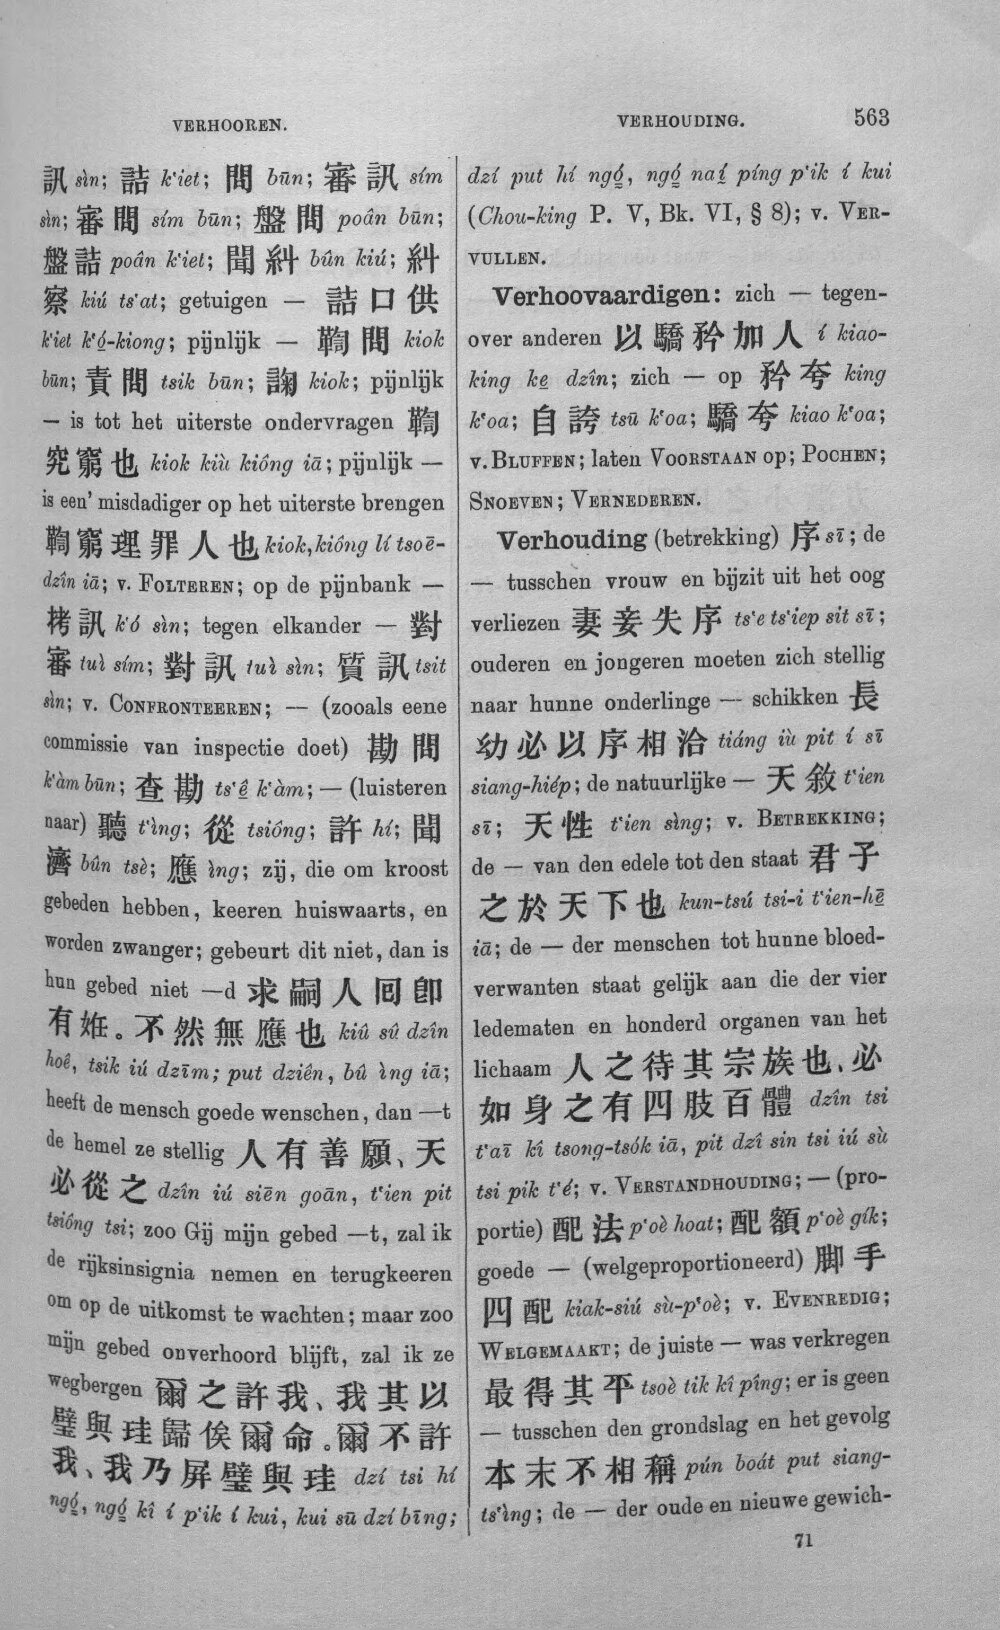 VERHOOREN.
VERHOUDING. 563
訊 sìn; 詰 k‘iet; 問 būn; 審訊 sím
sìn; 審問 sím būn; 盤問 poân būn;
盤詰 poân k‘iet; 聞糾 bûn kiú; 糾
察 kiú ts‘at; getuigen — 詰口供
k‘iet k‘ó̤-kiong; pijnlijk — 鞫問 kiok
būn; 責問 tsik būn; 諊 kiok; pijnlijk
— is tot het uiterste ondervragen 鞫
究窮也 kiok kiù kiông iā; pijnlijk —
is een’ misdadiger op het uiterste brengen
鞫窮理罪人也 kiok, kiông lí tsoē-
dzîn iā; v. FOLTEREN; op de pijnbank —
拷訊 k‘ó sìn; tegen elkander — 對
審 tuì sím; 對訊 tuì sìn; 質訊 tsit
sìn; v. CONFRONTEEREN; — (zooals eene
commissie van inspectie doet) 勘問
k‘àm būn; 查勘 ts‘ê̤ k‘àm; — (luisteren
naar) 聽 t‘ìng; 從 tsiông; 許 hí; 聞
濟 bûn tsè; 應 ìng; zij, die om kroost
gebeden hebben, keeren huiswaarts, en
worden zwanger; gebeurt dit niet, dan is
hun gebed niet —d 求嗣人囘卽
有姙。不然無應也 kiû sû dzîn
hoê, tsik iú dzīm; put dziên, bû ìng iā;
heeft de mensch goede wenschen, dan —t
de hemel ze stellig 人有善願、天
必從之 dzîn iú siēn goān, t‘ien pit
tsiông tsi; zoo Gij mijn gebed —t, zal ik
de rijksinsignia nemen en terugkeeren
om op de uitkomst te wachten; maar zoo
mijn gebed onverhoord blijft, zal ik ze
wegbergen 爾之許我、我其以
璧與珪歸俟爾命。爾不許
我、我乃屏璧與珪 dzí tsi hí
ngó̤, ngó̤ kî í p‘ik í kui, kui sū dzí bīng;
dzí put hí ngó̤, ngó̤ naí̤ píng p‘ik í kui
(Chou-king P. V, Bk. VI, § 8); v. VER-
VULLEN.
Verhoovaardigen: zich — tegen-
over anderen 以驕矜加人 í kiao-
king ke̤ dzîn; zich — op 矜夸 king
k‘oa; 自誇 tsū k‘oa; 驕夸 kiao k‘oa;
v. BLUFFEN; laten VOORSTAAN op; POCHEN;
SNOEVEN; VERNEDEREN.
Verhouding (betrekking) 序 sī; de
— tusschen vrouw en bijzit uit het oog
verliezen 妻妾失序 ts‘e ts‘iep sit sī;
ouderen en jongeren moeten zich stellig
naar hunne onderlinge — schikken 長
幼必以序相洽 tiáng iù pit í sī
siang-hiép; de natuurlijke — 天敘 t‘ien
sī; 天性 t‘ien sìng; v. BETREKKING;
de — van den edele tot den staat 君子
之於天下也 kun-tsú tsi-i t‘ien-hē̤
iā; de — der menschen tot hunne bloed-
verwanten staat gelijk aan die der vier
ledematen en honderd organen van het
lichaam 人之待其宗族也、必
如身之有四肢百體 dzîn tsi
t‘aī kî tsong-tsók iā, pit dzî sin tsi iú sù
tsi pik t‘é; v. VERSTANDHOUDING; — (pro-
portie) 配法 p‘oè hoat; 配額 p‘oè gík;
goede — (welgeproportioneerd) 脚手
四配 kiak-siú sù-p‘oè; v. EVENREDIG;
WELGEMAAKT; de juiste — was verkregen
最得其平 tsoè tik kî pîng; er is geen
— tusschen den grondslag en het gevolg
本末不相稱 pún boát put siang-
ts‘ìng; de — der oude en nieuwe gewich-
71